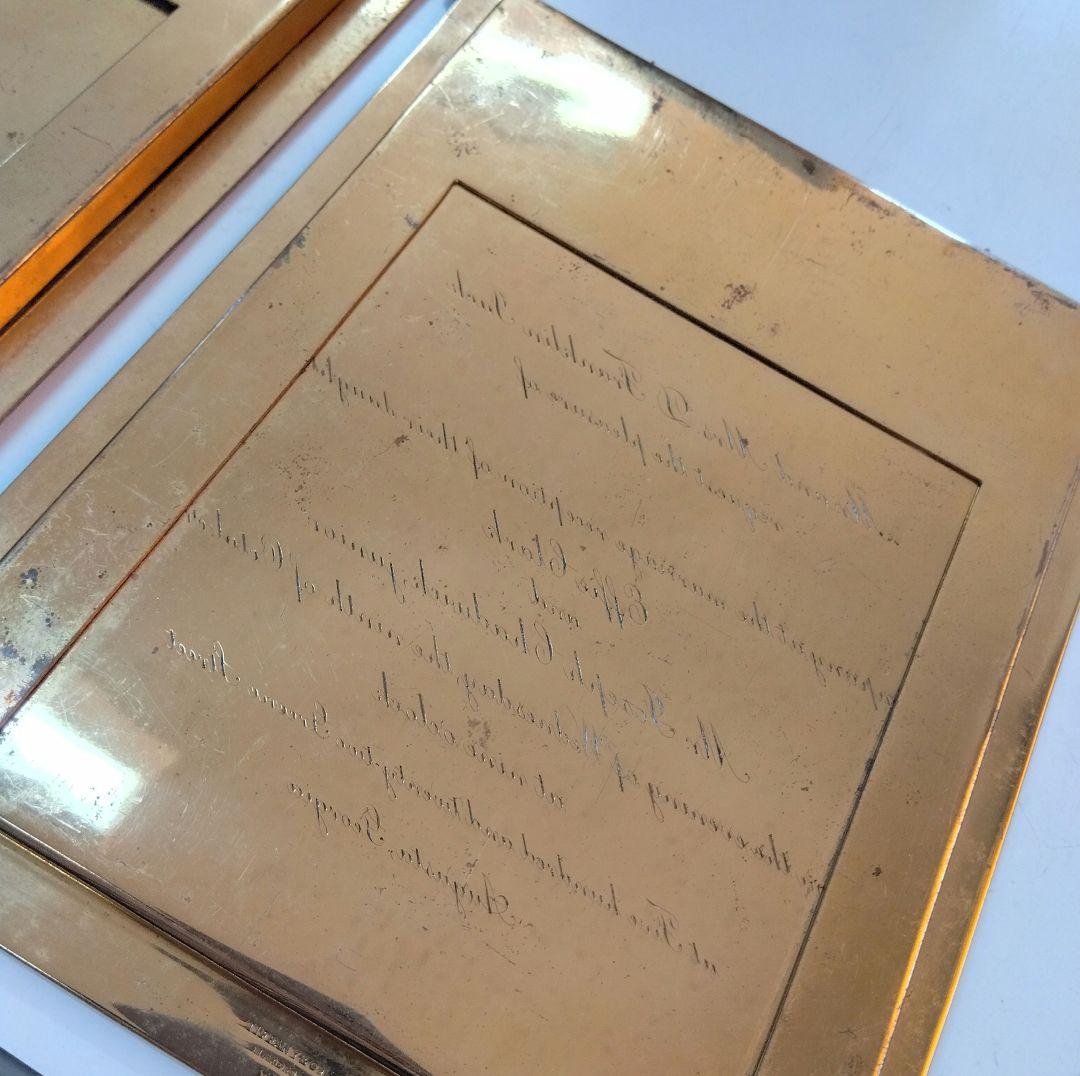 Mr. and Mrs. D. Franklin Jack
request the pleasure of
company at the marriage reception of their daughter
Effie Clark
and
Mr. Joseph Chadwick, junior
on the evening of Wednesday, the ninth of October
at nine o'clock
at Five hundred and twenty-two Greene Street
Augusta, Georgia